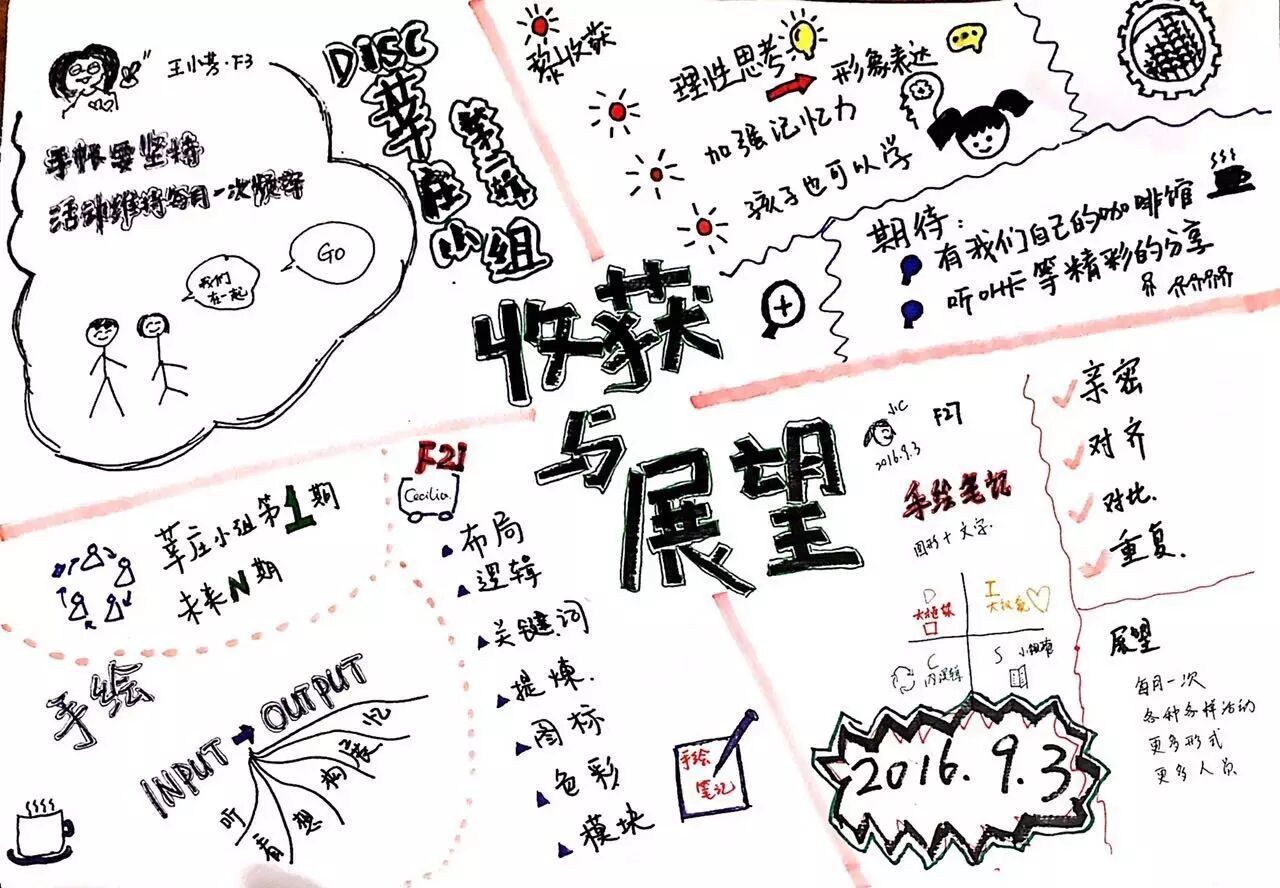 王小芳·F3
手帐要坚持
活动维持每月一次频率
我们
在一起
GO
DISC
莘庄
第二辑
小组
收获
与
展望
收获
理性思考
形象表达
加强记忆力
孩子也可以学
期待:
有我们自己的咖啡馆
听叫卡等精彩的分享
F21
Cecilia
布局
逻辑
关键词
提炼.
图标
色彩
模块
手绘
笔记
莘庄小组第1期
未来N期
手绘
INPUT
OUTPUT
听
看
想
构
忆
JIC
F27
2016.9.3
手绘笔记
图形+文字.
D
大框架
I
C
内逻辑
S
亲密
对齐
对比.
重复.
展望
每月一次
各种各样活动
更多形式
更多人员
2016.9.3